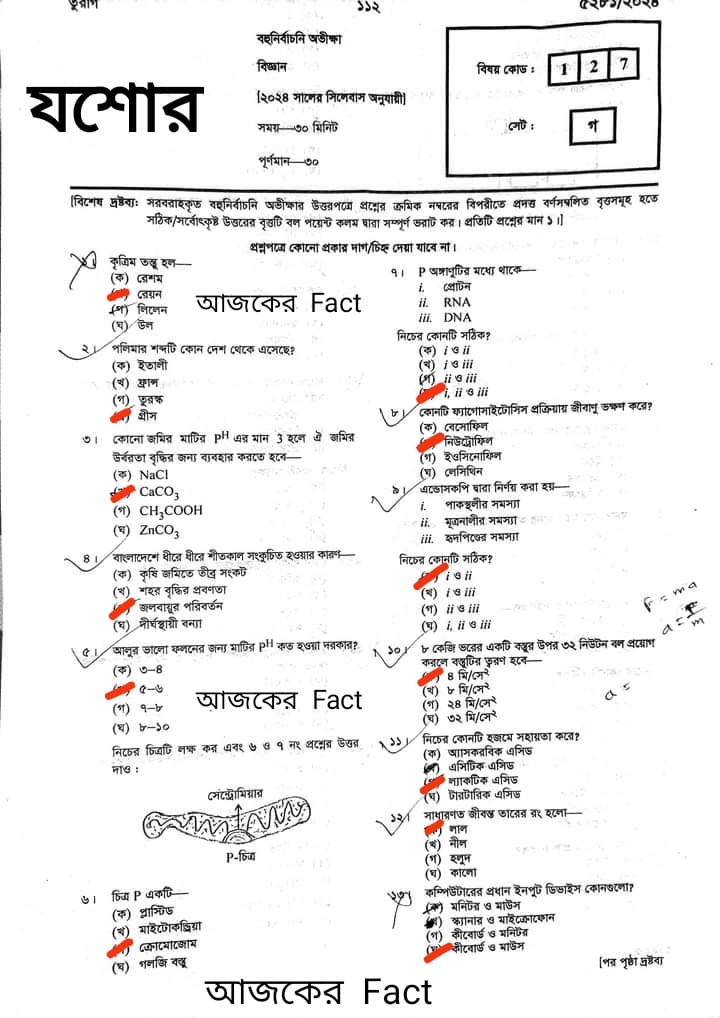 তুরাগ
১১২
৫২৮১/২০২৪
যশোর
বহুনির্বাচনি অভীক্ষা
বিজ্ঞান
[২০২৪ সালের সিলেবাস অনুযায়ী]
সময়—৩০ মিনিট
পূর্ণমান—৩০
বিষয় কোড : 1 2 7
সেট : গ
[বিশেষ দ্রষ্টব্য: সরবরাহকৃত বহুনির্বাচনি অভীক্ষার উত্তরপত্রে প্রশ্নের ক্রমিক নম্বরের বিপরীতে প্রদত্ত বর্ণসম্বলিত বৃত্তসমূহ হতে
সঠিক/সর্বোৎকৃষ্ট উত্তরের বৃত্তটি বল পয়েন্ট কলম দ্বারা সম্পূর্ণ ভরাট কর। প্রতিটি প্রশ্নের মান ১।]
প্রশ্নপত্রে কোনো প্রকার দাগ/চিহ্ন দেয়া যাবে না।
১। কৃত্রিম তন্তু হল—
(ক) রেশম
রেয়ন
(গ) লিলেন
(ঘ) উল
আজকের Fact
২। পলিমার শব্দটি কোন দেশ থেকে এসেছে?
(ক) ইতালী
(খ) ফ্রান্স
(গ) তুরস্ক
গ্রীস
৩। কোনো জমির মাটির pH এর মান 3 হলে ঐ জমির
উর্বরতা বৃদ্ধির জন্য ব্যবহার করতে হবে—
(ক) NaCl
CaCO₃
(গ) CH₃COOH
(ঘ) ZnCO₃
৪। বাংলাদেশে ধীরে ধীরে শীতকাল সংকুচিত হওয়ার কারণ—
(ক) কৃষি জমিতে তীব্র সংকট
(খ) শহর বৃদ্ধির প্রবণতা
জলবায়ুর পরিবর্তন
(ঘ) দীর্ঘস্থায়ী বন্যা
৫। আলুর ভালো ফলনের জন্য মাটির pH কত হওয়া দরকার?
(ক) ৩–৪
৫–৬
(গ) ৭–৮
(ঘ) ৮–১০
আজকের Fact
নিচের চিত্রটি লক্ষ কর এবং ৬ ও ৭ নং প্রশ্নের উত্তর
দাও :
সেন্ট্রোমিয়ার
P-চিত্র
৬। চিত্র P একটি—
(ক) প্লাস্টিড
(খ) মাইটোকন্ড্রিয়া
ক্রোমোজোম
(ঘ) গলজি বস্তু
৭। P অঙ্গাণুটির মধ্যে থাকে—
i. প্রোটন
ii. RNA
iii. DNA
নিচের কোনটি সঠিক?
(ক) i ও ii
(খ) i ও iii
(গ) ii ও iii
i, ii ও iii
৮। কোনটি ফ্যাগোসাইটোসিস প্রক্রিয়ায় জীবাণু ভক্ষণ করে?
(ক) বেসোফিল
নিউট্রোফিল
(গ) ইওসিনোফিল
(ঘ) লেসিথিন
৯। এন্ডোসকপি দ্বারা নির্ণয় করা হয়—
i. পাকস্থলীর সমস্যা
ii. মূত্রনালীর সমস্যা
iii. হৃদপিণ্ডের সমস্যা
নিচের কোনটি সঠিক?
i ও ii
(খ) i ও iii
(গ) ii ও iii
(ঘ) i, ii ও iii
F = ma
a = F/m
১০। ৮ কেজি ভরের একটি বস্তুর উপর ৩২ নিউটন বল প্রয়োগ
করলে বস্তুটির ত্বরণ হবে—
৪ মি/সে²
(খ) ৮ মি/সে²
(গ) ২৪ মি/সে²
(ঘ) ৩২ মি/সে²
a =
১১। নিচের কোনটি হজমে সহায়তা করে?
(ক) অ্যাসকরবিক এসিড
এসিটিক এসিড
ল্যাকটিক এসিড
(ঘ) টারটারিক এসিড
১২। সাধারণত জীবন্ত তারের রং হলো—
লাল
(খ) নীল
(গ) হলুদ
(ঘ) কালো
১৩। কম্পিউটারের প্রধান ইনপুট ডিভাইস কোনগুলো?
(ক) মনিটর ও মাউস
স্ক্যানার ও মাইক্রোফোন
(গ) কীবোর্ড ও মনিটর
কীবোর্ড ও মাউস
[পর পৃষ্ঠা দ্রষ্টব্য
আজকের Fact